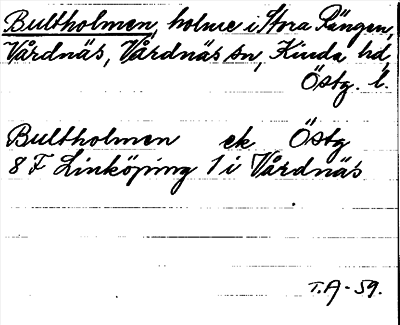 Bultholmen, holme i Stora Rängen,
Vårdnäs, Vårdnäs sn, Kinda hd,
Östg. l.
Bultholmen ek Östg
8 F Linköping 1 i Vårdnäs
T.A-59.